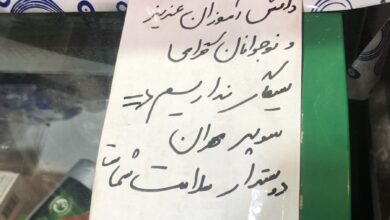 دانش آموزان عزیز
و نوجوانان گرامی
سیگار نداریم
سوپر مهران
دوستدار سلامت شماست